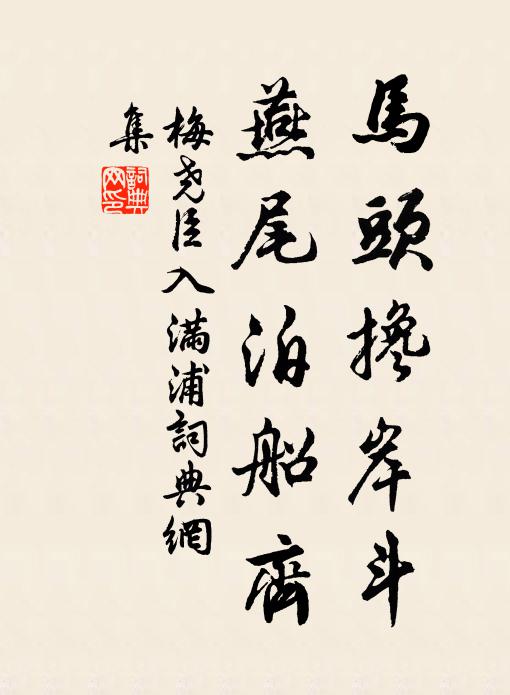 馬頭搀岸斗
燕尾泊船齊
梅堯臣入滿浦詞典網
集
詞典网印